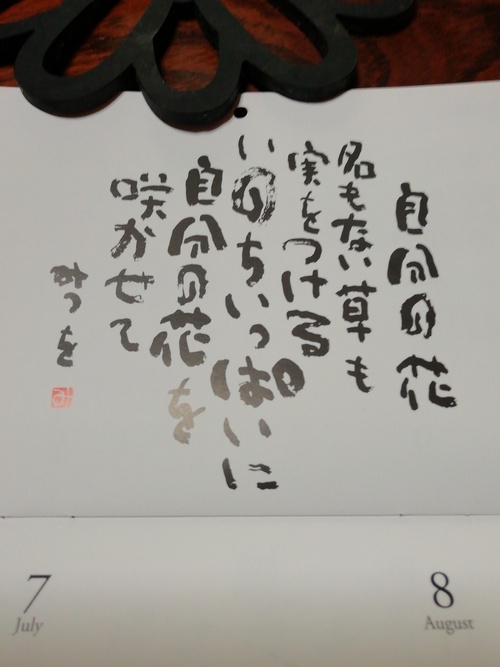 自分の花
名もない草も
実をつける
いのちいっぱいに
自分の花を
咲かせて
みつを
7
July
8
August